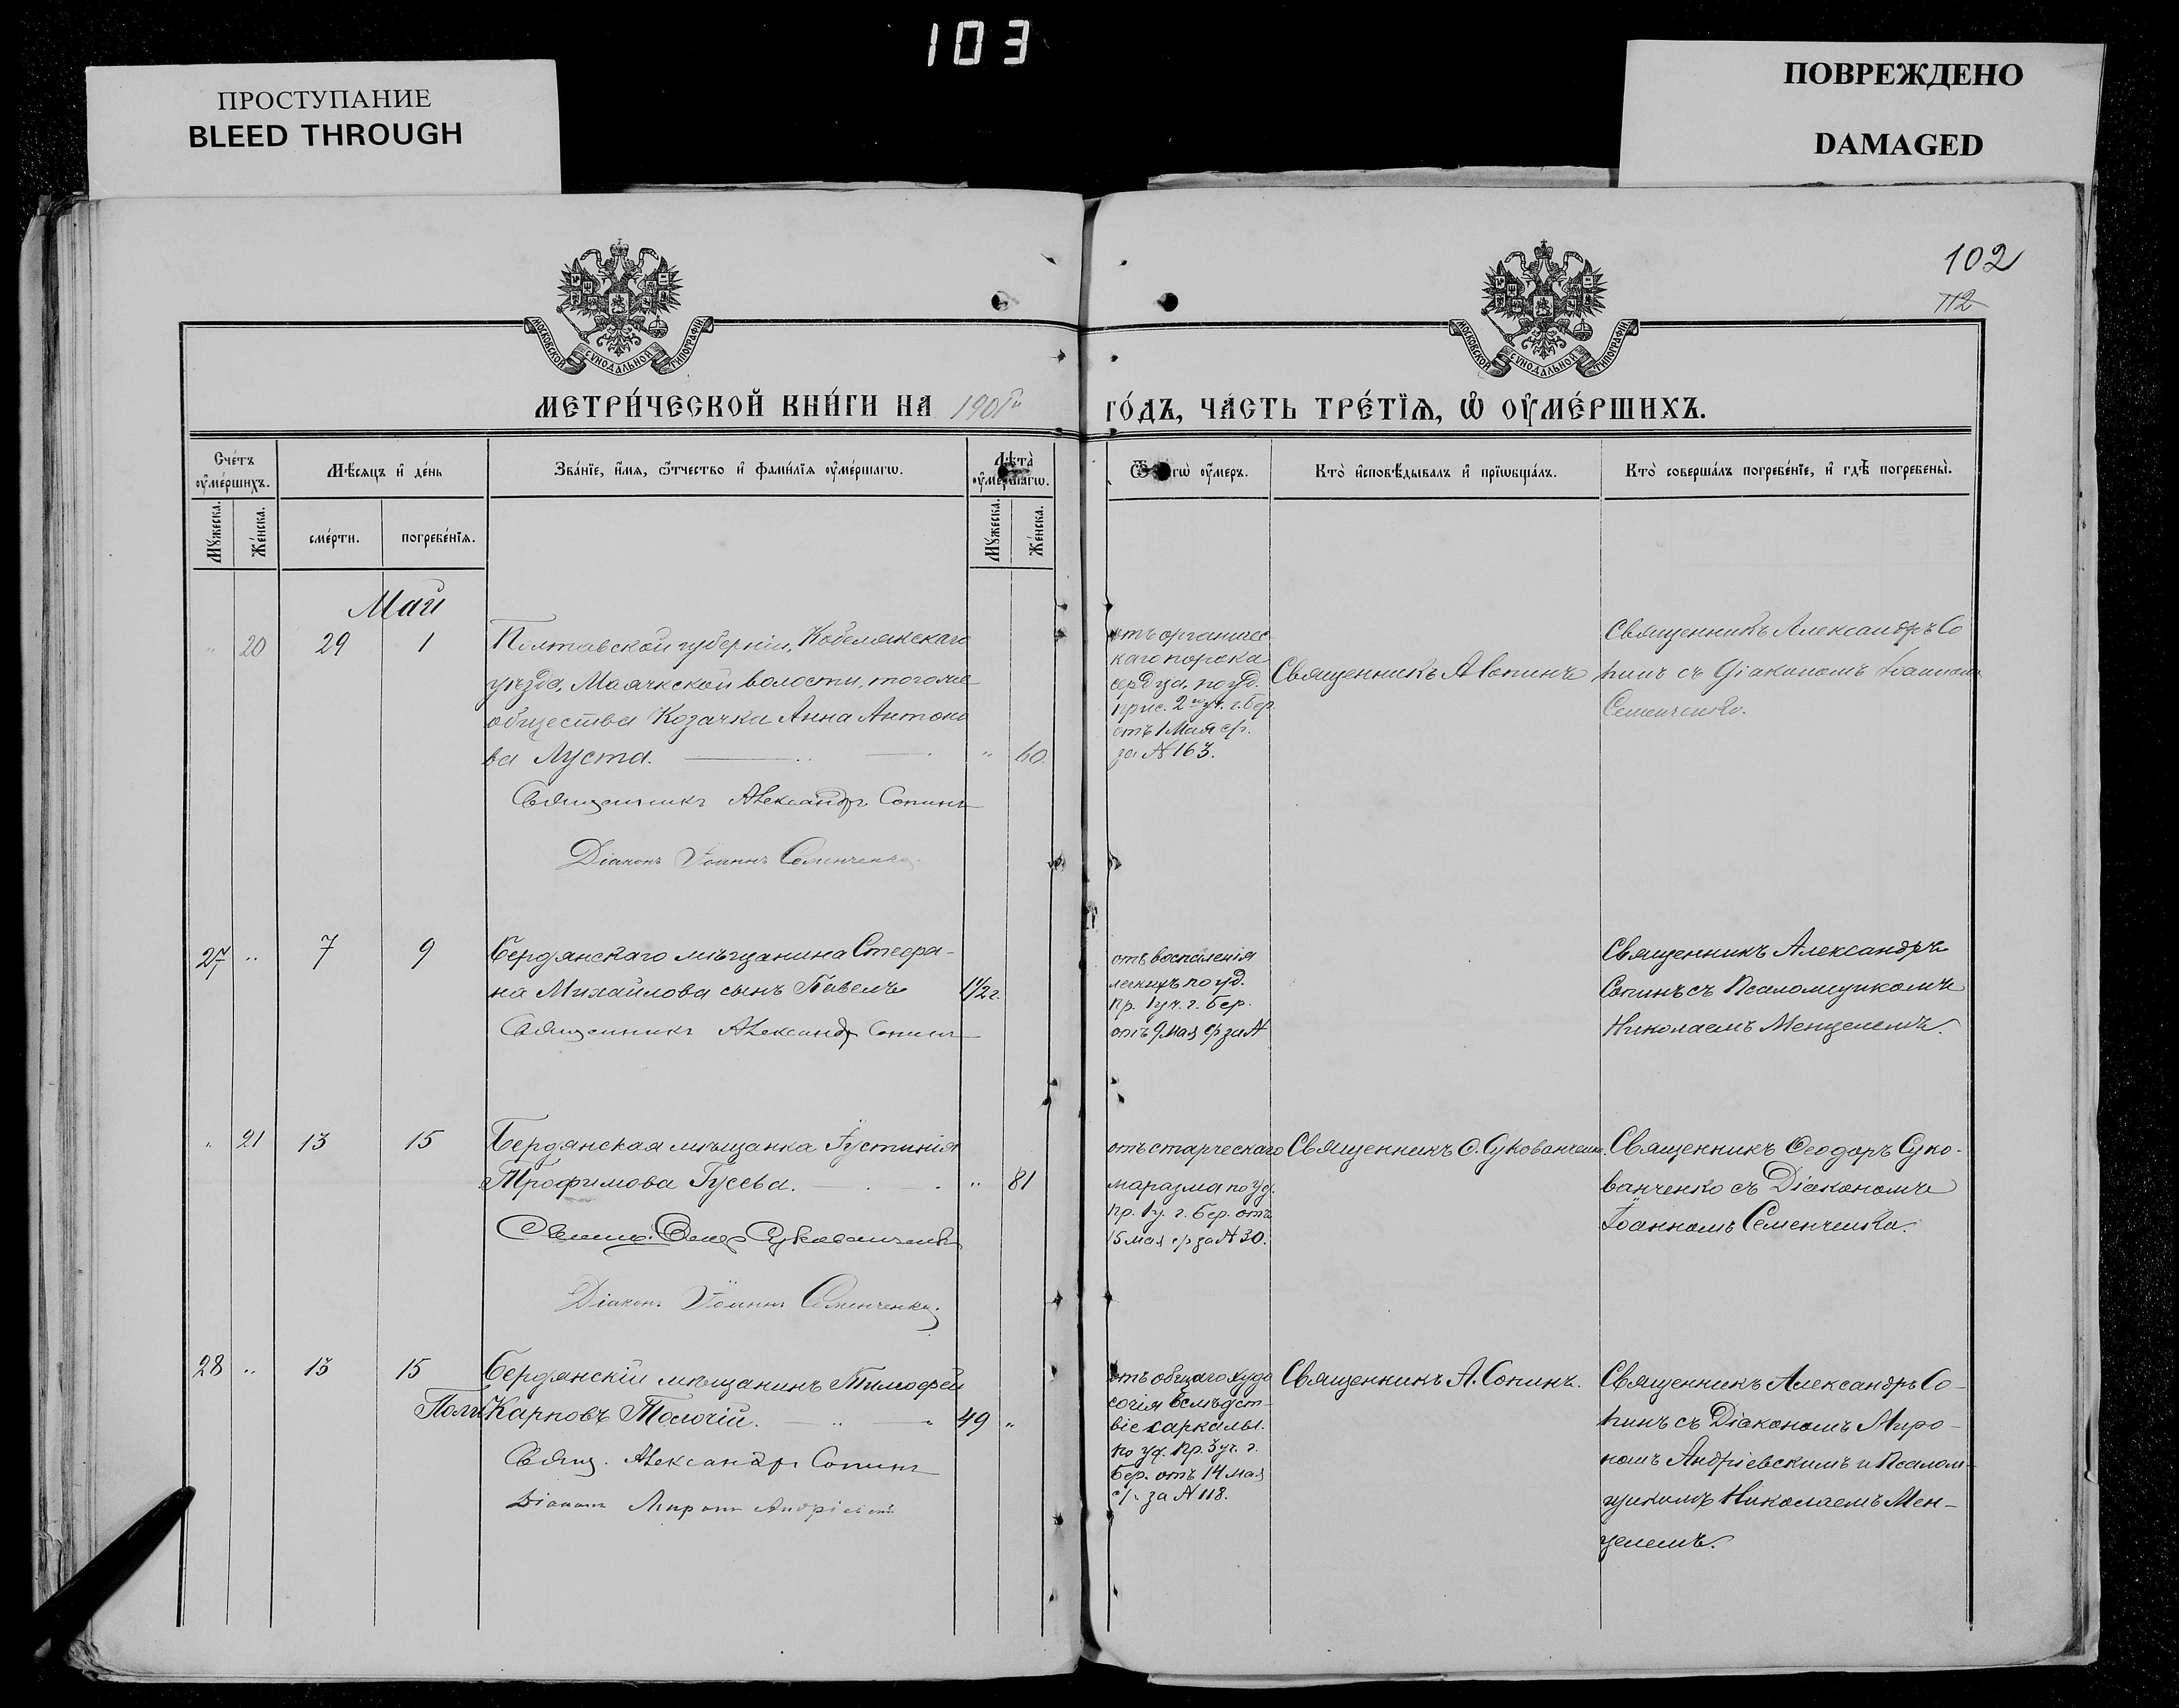 103
ПРОСТУПАНИЕ
BLEED THROUGH
ПОВРЕЖДЕНО
DAMAGED
102
112
МОСКОВСКОЙ СѴНОДАЛЬНОЙ ТИПОГРАФІИ
МОСКОВСКОЙ СѴНОДАЛЬНОЙ ТИПОГРАФІИ
МЕТРИ́ЧЕСКОЙ КНИ́ГИ НА 1901й ГО́ДЪ, ЧА́СТЬ ТРЕ́ТІѦ, Ѡ҆ ОУ҆МЕ́РШИХЪ.
Сче́тъ оу҆ме́ршихъ.
Мѣ́сяцъ и҆ де́нь
Зва́нїе, и҆́мя, ѻ҆́тчество и҆ фами́лїя оу҆ме́ршагѡ.
Лѣ́та оу҆ме́ршагѡ.
гѡ̀ оу҆́меръ.
Кто̀ и҆сповѣ́дывалъ и҆ прїѡбща́лъ.
Кто̀ соверша́лъ погребе́нїе, и҆ гдѣ̀ погребены̀.
Мꙋ́жеска.
Же́нска.
сме́рти.
погребе́нїя.
Мꙋ́жеска.
Же́нска.
Май
" 20 29 1
Полтавской губерніи, Кобелякскаго
уѣзда, Маячкской волости, тогоже
общества Козачка Анна Антоно
ва Луста. " 60
Священникъ Александръ Сопинъ
Діаконъ Іоаннъ Семенченко.
отъ органичес-
каго порока
сердца, по уд.
прис. 2го уч. г. Бер
отъ 1 Мая с/г.
за № 163.
Священникъ А Сопинъ
Священникъ Александръ Со
пинъ съ Діакономъ Іоанномъ
Семенченко.
27 " 7 9
Бердянскаго мѣщанина Стефа-
на Михайлова сынъ Павелъ 1 1/2 г.
Священникъ Александръ Сопинъ
отъ воспаленія
легкихъ по уд.
пр. 1 уч. г. Бер.
отъ 9 мая с/г за №
Священникъ Александръ
Сопинъ съ Псаломщикомъ
Николаемъ Менцелемъ.
" 21 13 15
Бердянская мѣщанка Іустинія
Трофимова Гусева. " 81
Священ. Ѳеод. Сукованченко
Діаконъ Іоаннъ Семенченко.
отъ старческаго
маразма по уд.
пр. 1 у. г. Бер. отъ
15 мая с/г за № 30.
Священникъ Ѳ. Сукованченко.
Священникъ Ѳеодоръ Суко-
ванченко съ Діакономъ
Іоанномъ Семенченко.
28 " 13 15
Бердянскій мѣщанинъ Тимофей
Карповъ Толочій. 49 "
Свящ. Александръ Сопинъ
Діаконъ Миронъ Андріевскій
отъ общаго худо
сочія вслѣдст-
віе саркомы.
по уд. пр. 3 уч. г.
Бер. отъ 14 мая
с/г. за № 118.
Священникъ А. Сопинъ.
Священникъ Александръ Со-
пинъ съ Діакономъ Миро-
номъ Андріевскимъ и Псалом-
щикомъ Николаемъ Мен-
целемъ.